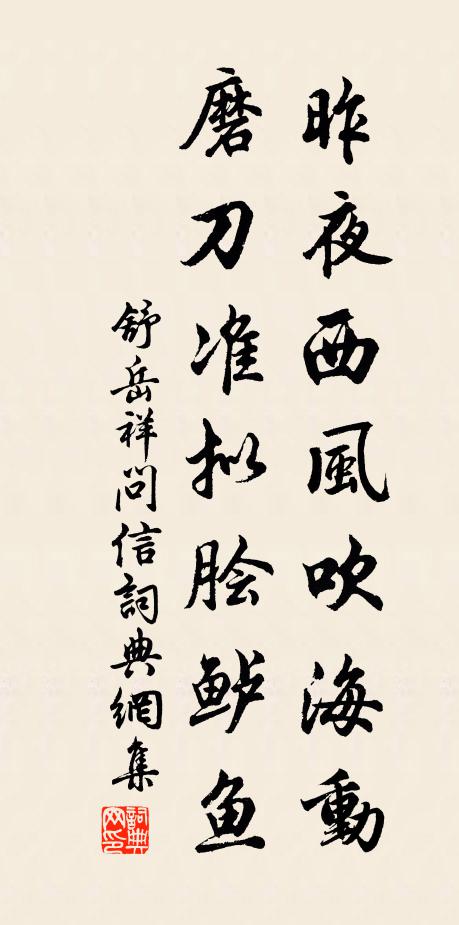 昨夜西風吹海動
磨刀准拟脍鲈鱼
舒岳祥問信詞典網集
詞典网印